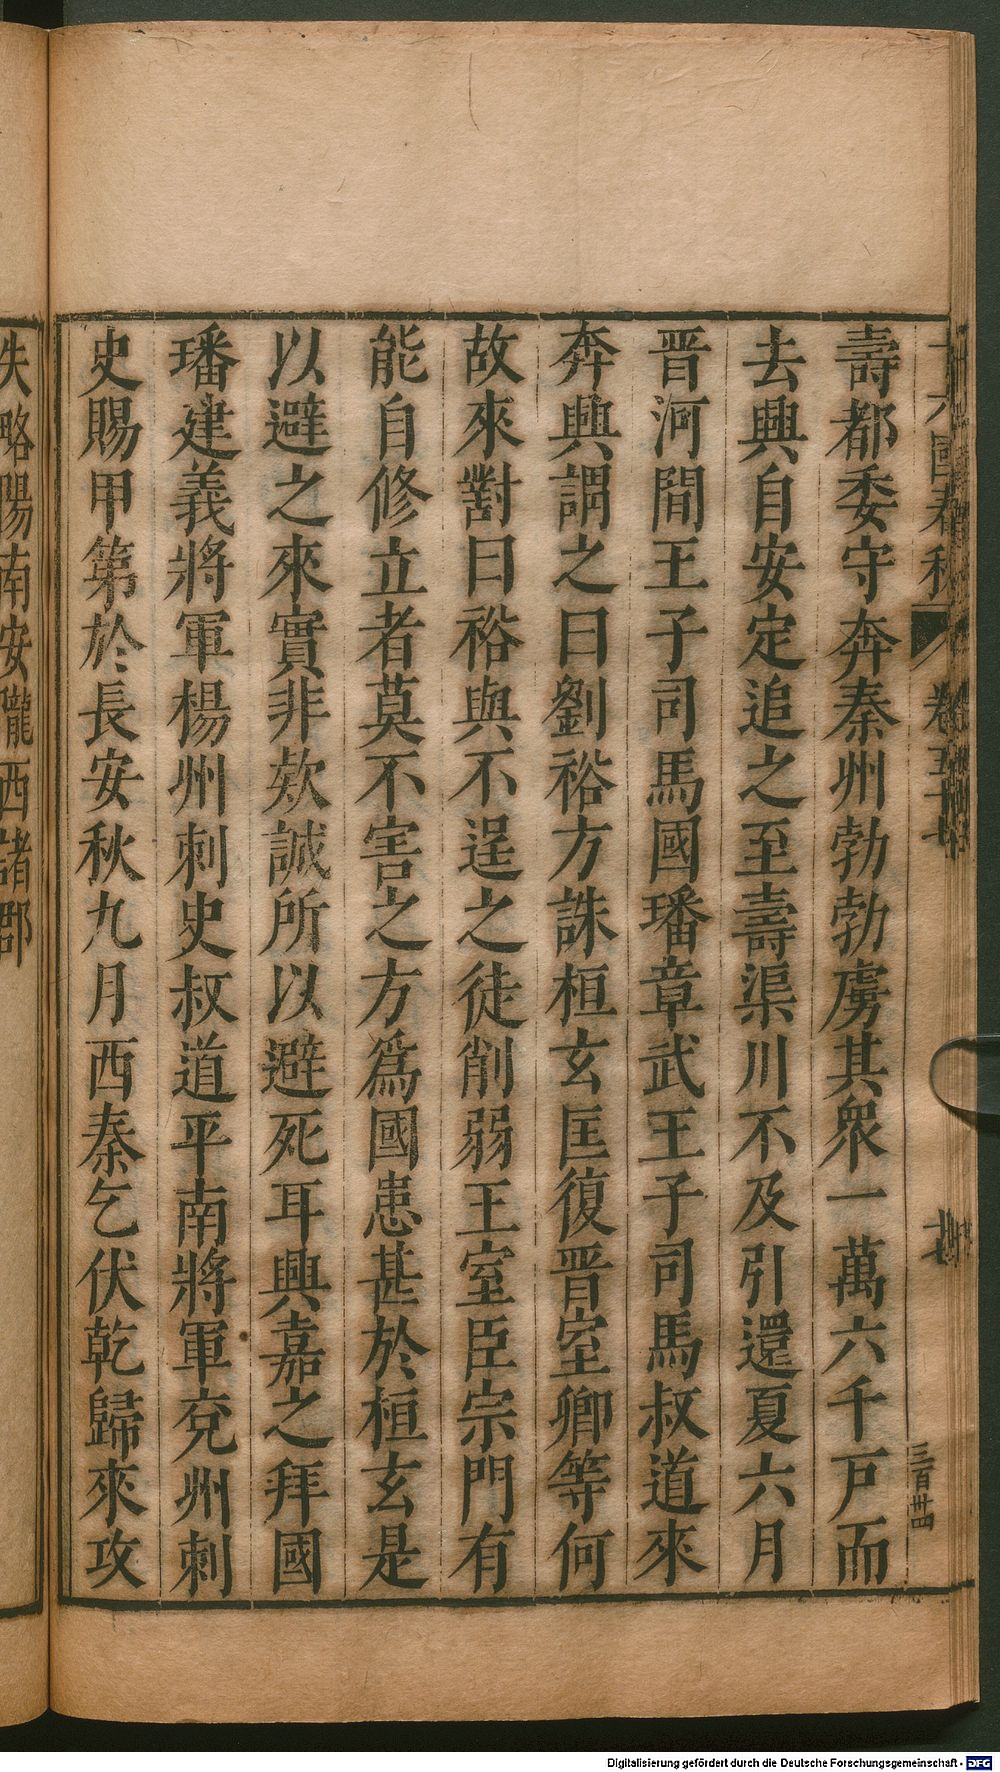 十六國春秋 卷五十七
三百卅四
壽都委守奔秦州勃勃虜其衆一萬六千戸而
去興自安定追之至壽渠川不及引還夏六月
晋河間王子司馬國璠章武王子司馬叔道來
奔興謂之曰劉裕方誅桓玄匡復晋室卿等何
故來對曰裕與不逞之徒削弱王室臣宗門有
能自修立者莫不害之方爲國患甚於桓玄是
以避之來實非欵誠所以避死耳興嘉之拜國
璠建義將軍楊州刺史叔道平南將軍兗州刺
史賜甲第於長安秋九月西秦乞伏乾歸來攻
失略陽南安隴西諸郡
Digitalisierung gefördert durch die Deutsche Forschungsgemeinschaft - DFG